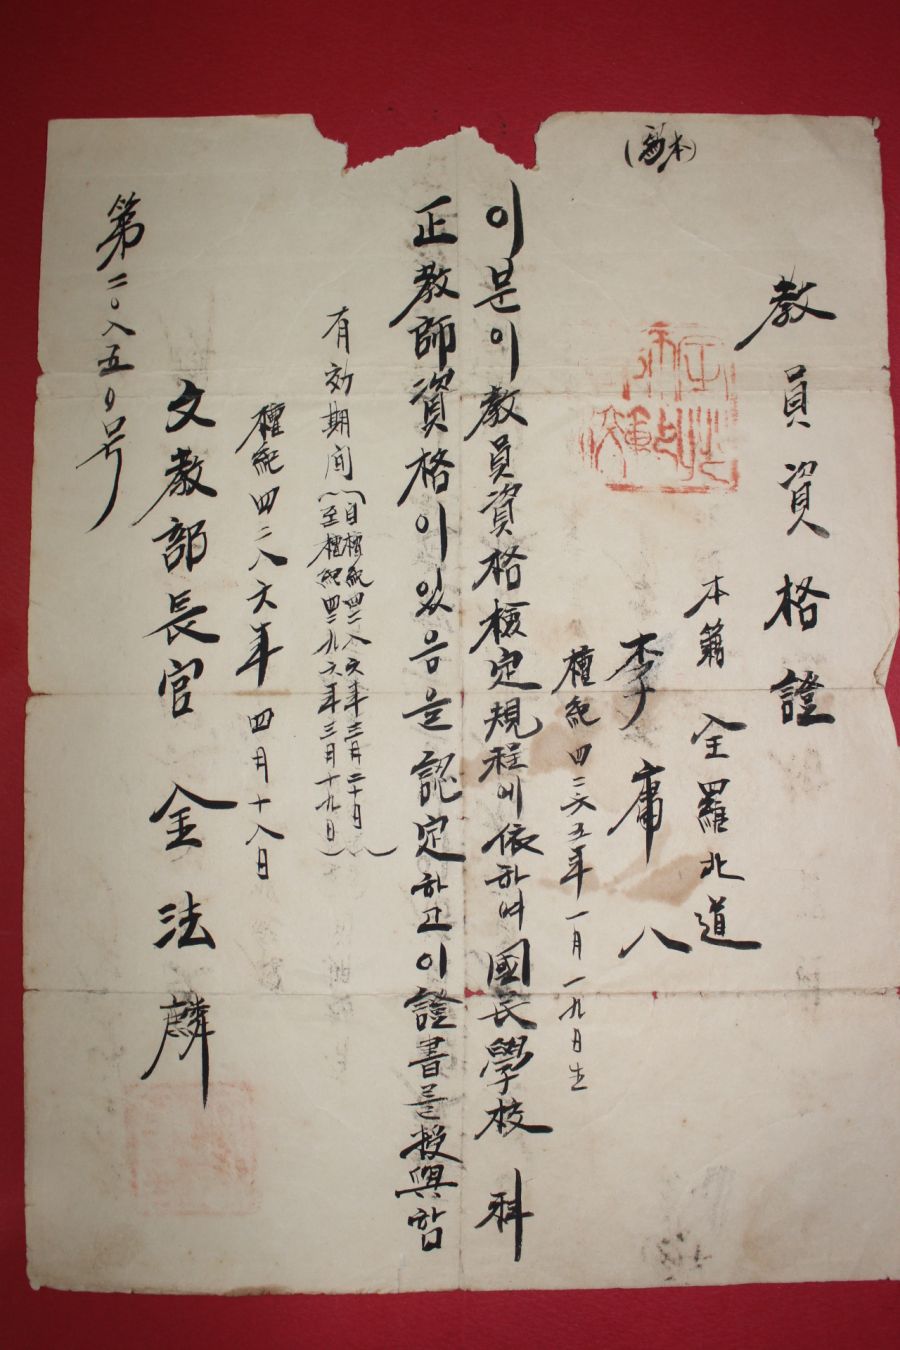 (寫本)
教員資格證
本籍 全羅北道
李庸八
檀紀四二六五年一月一九日生
이분이敎員資格檢定規程에依하여國民學校 科
正敎師資格이있음을認定하고이證書를授與함
有効期間
(自檀紀四二八六年三月二十日
至檀紀四二九六年三月十九日)
檀紀四二八六年 四月十八日
文敎部長官 金法麟
第二0八五0号